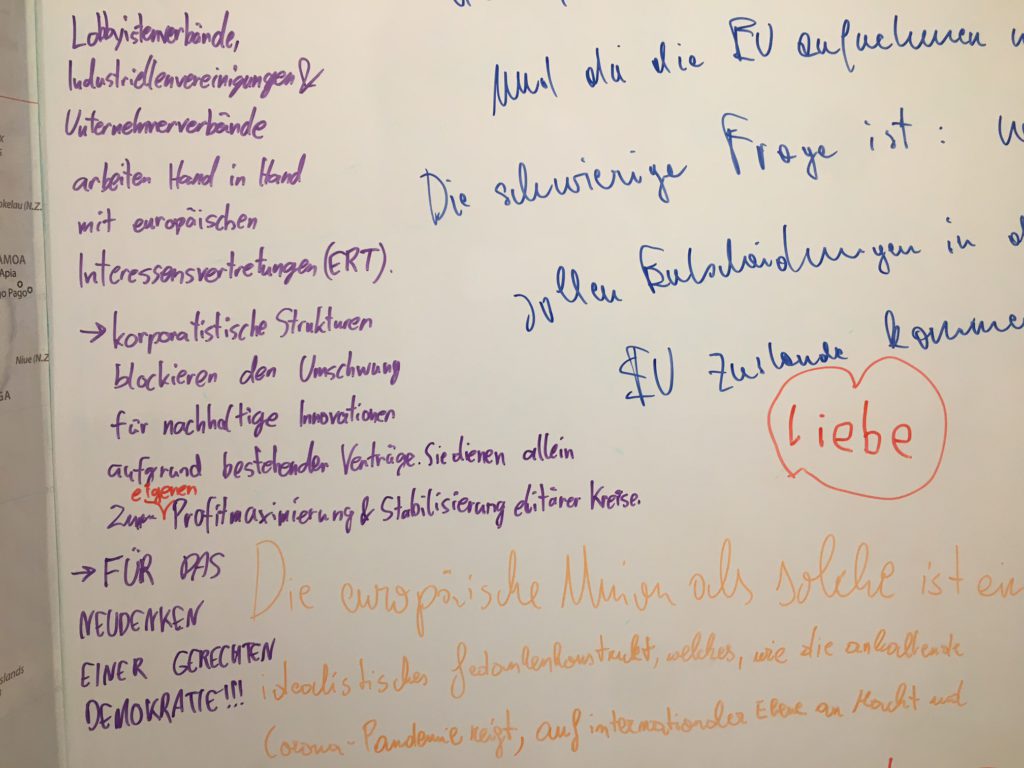 Lobbyistenverbände,
Industriellenvereinigungen &
Unternehmerverbände
arbeiten Hand in Hand
mit europäischen
Interessensvertretungen (ERT).
→ korporatistische Strukturen
blockieren den Umschwung
für nachhaltige Innovationen
aufgrund bestehender Verträge. Sie dienen allein
eigenen
Zur Profitmaximierung & Stabilisierung elitärer Kreise.
→ FÜR DAS
NEUDENKEN
EINER GERECHTEN
DEMOKRATIE!!!
und da die EU aufnehmen
Die schwierige Frage ist:
sollen Entscheidungen in
EU zustande kommen
Liebe
Die europäische Union als solche ist ein
idealistisches Gedankenkonstrukt, welches, wie die anhaltende
Corona-Pandemie zeigt, auf internationaler Ebene an Macht und
AMOA
Apia
go Pago
Niue (N.Z
GA
okelau (N.Z.
slands